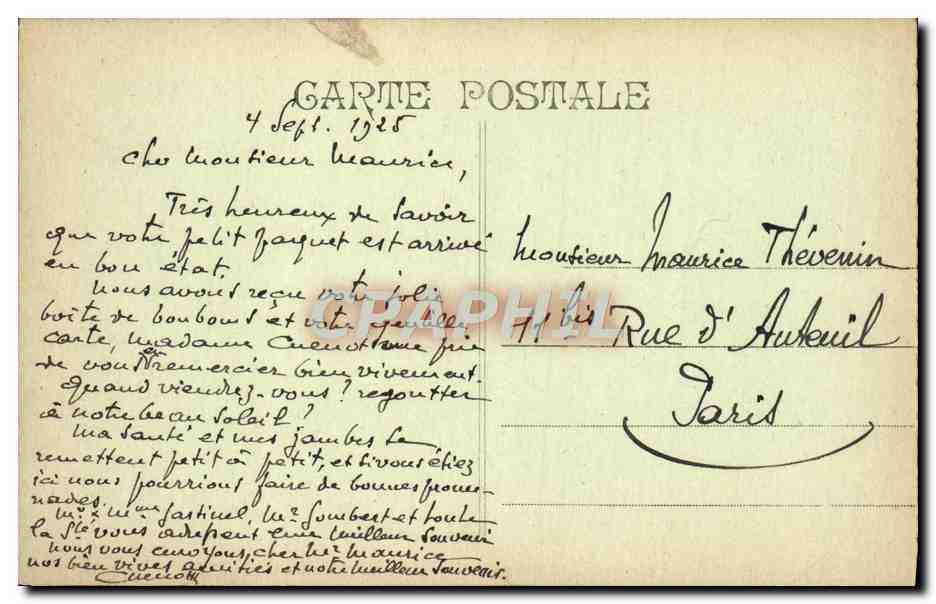 CARTE POSTALE
4 Sept. 1925
Cher Monsieur Maurice,
Très heureux de savoir
que votre petit paquet est arrivé
en bon état.
Nous avons reçu votre jolie
boîte de bonbons et votre gentille
carte, Madame Cuenot me prie
de vous en remercier bien vivement.
Quand viendrez-vous? regoutter
à notre beau soleil?
Ma santé et mes jambes se
remettent petit à petit, et si vous étiez
ici nous pourrions faire de bonnes prome-
nades.
Mr & Mme Gastinel, Mr Gombert et toute
la Sté vous adressent leur meilleur souvenir
Nous vous envoyons, cher Mr Maurice
nos bien vives amitiés et notre meilleur souvenir.
Cuenot
Monsieur Maurice Thévenin
11 bis Rue d'Auteuil
Paris
CPAPHIL